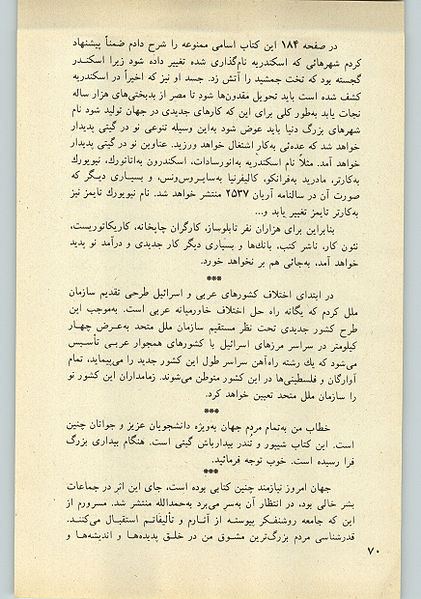 در صفحه ۱۸۴ این کتاب اسامی ممنوعه را شرح دادم ضمناً پیشنهاد
کردم شهرهائی که اسکندریه نام‌گذاری شده تغییر داده شود زیرا اسکندر
گجسته بود که تخت جمشید را آتش زد. جسد او نیز که اخیراً در اسکندریه
کشف شده است باید تحویل مقدون‌ها شود تا مصر از بدبختی‌های هزار ساله
نجات یابد به‌طور کلی برای این که کارهای جدیدی در جهان تولید شود نام
شهرهای بزرگ دنیا باید عوض شود به‌این وسیله تنوعی نو در گیتی پدیدار
خواهد شد که عده‌ئی به‌کار اشتغال خواهد ورزید. عناوین نو در گیتی پدیدار
خواهد آمد. مثلاً نام اسکندریه به‌انورسادات، اسکندرون به‌اتاتورك، نیویورك
به‌کارتر، مادرید به‌فرانکو، کالیفرنیا به‌سایروس‌ونس، و بسیاری دیگر که
صورت آن در سالنامه آریان ۲۵۳۷ منتشر خواهد شد. نام نیویورك تایمز نیز
به‌کارتر تایمز تغییر یابد و...
بنابراین برای هزاران نفر تابلوساز، کارگران چاپخانه، کاریکاتوریست،
نئون کار، ناشر کتب، بانك‌ها و بسیاری دیگر کار جدیدی و درآمد نو پدید
خواهد آمد، به‌جائی هم بر نخواهد خورد.
***
در ابتدای اختلاف کشورهای عربی و اسرائیل طرحی تقدیم سازمان
ملل کردم که یگانه راه حل اختلاف خاورمیانه عربی است. به‌موجب این
طرح کشور جدیدی تحت نظر مستقیم سازمان ملل متحد به‌عرض چهار
کیلومتر در سراسر مرزهای اسرائیل با کشورهای همجوار عربی تأسیس
می‌شود که یك رشته راه‌آهن سراسر طول این کشور جدید را می‌پیماید، تمام
آوارگان و فلسطینی‌ها در این کشور متوطن می‌شوند. زمامداران این کشور نو
را سازمان ملل متحد تعیین خواهد کرد.
***
خطاب من به‌تمام مردم جهان به‌ویژه دانشجویان عزیز و جوانان چنین
است. این کتاب شیپور و تندر بیدارباش گیتی است. هنگام بیداری بزرگ
فرا رسیده است. خوب توجه فرمائید.
***
جهان امروز نیازمند چنین کتابی بوده است، جای این اثر در جماعات
بشر خالی بود، در انتظار آن به‌سر می‌برد به‌حمدالله منتشر شد. مسرورم از
این که جامعه روشنفکر پیوسته از آثارم و تألیفاتم استقبال می‌کنند.
قدرشناسی مردم بزرگ‌ترین مشوق من در خلق پدیده‌ها و اندیشه‌ها و
۷۰